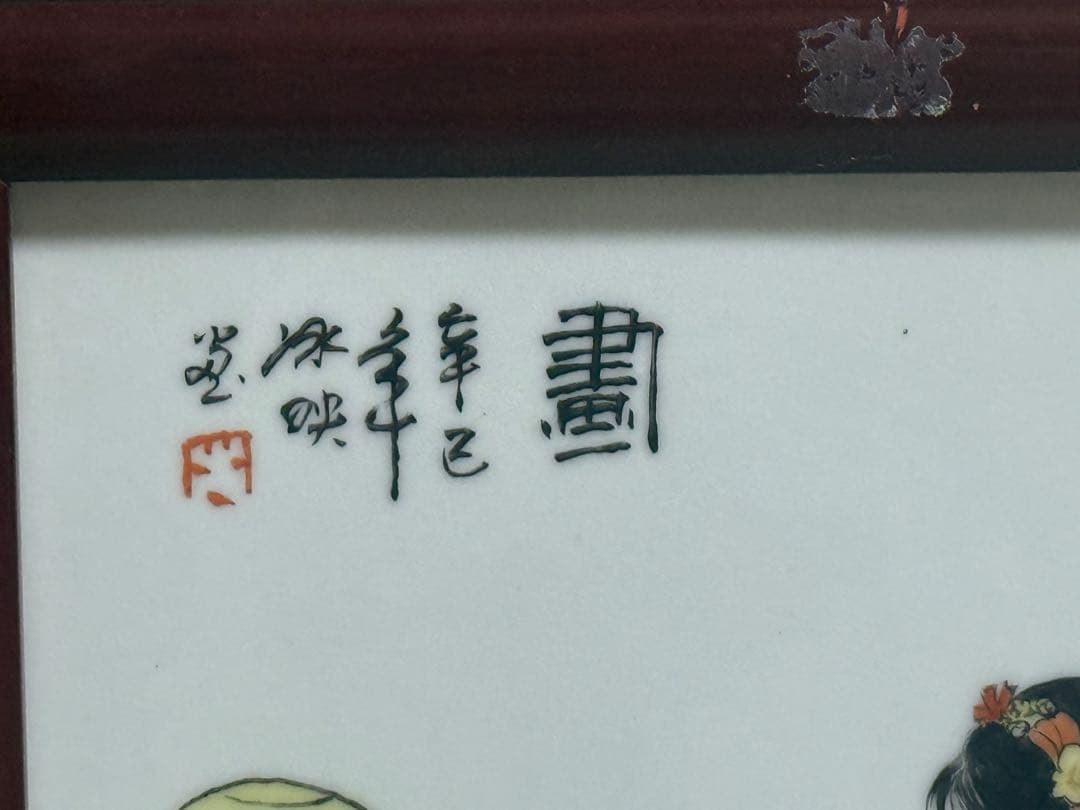 畫
辛巳
年
冰映
画